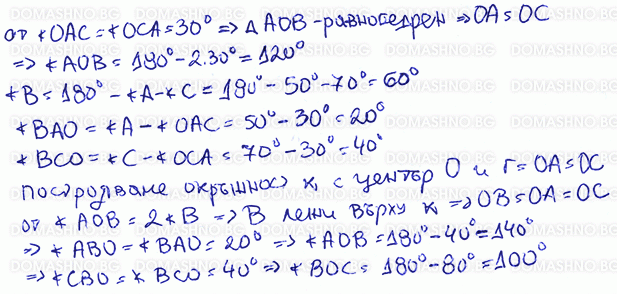 от ∢OAC = ∢OCA = 30° ⇒ △ AOB - равнобедрен ⇒ OA = OC
⇒ ∢AOB = 180° - 2.30° = 120°
∢B = 180° - ∢A - ∢C = 180° - 50° - 70° = 60°
∢BAO = ∢A - ∢OAC = 50° - 30° = 20°
∢BCO = ∢C - ∢OCA = 70° - 30° = 40°
Построяваме окръжност k, с център O и r = OA = OC
от ∢AOB = 2∢B ⇒ B лежи върху k ⇒ OB = OA = OC
⇒ ∢ABO = ∢BAO = 20° ⇒ ∢AOB = 180° - 40° = 140°
⇒ ∢CBO = ∢BCO = 40° ⇒ ∢BOC = 180° - 80° = 100°